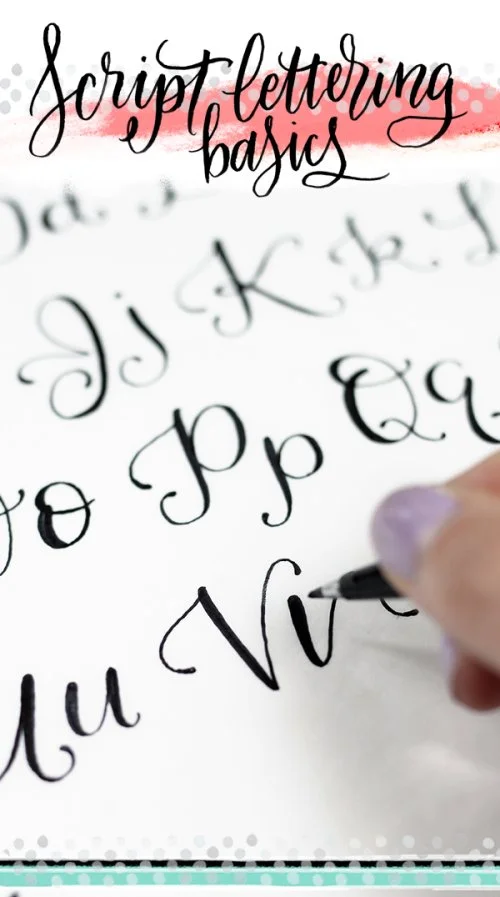 Script lettering
basics
Jj Kk L
o Pp Qq
Uu Vv